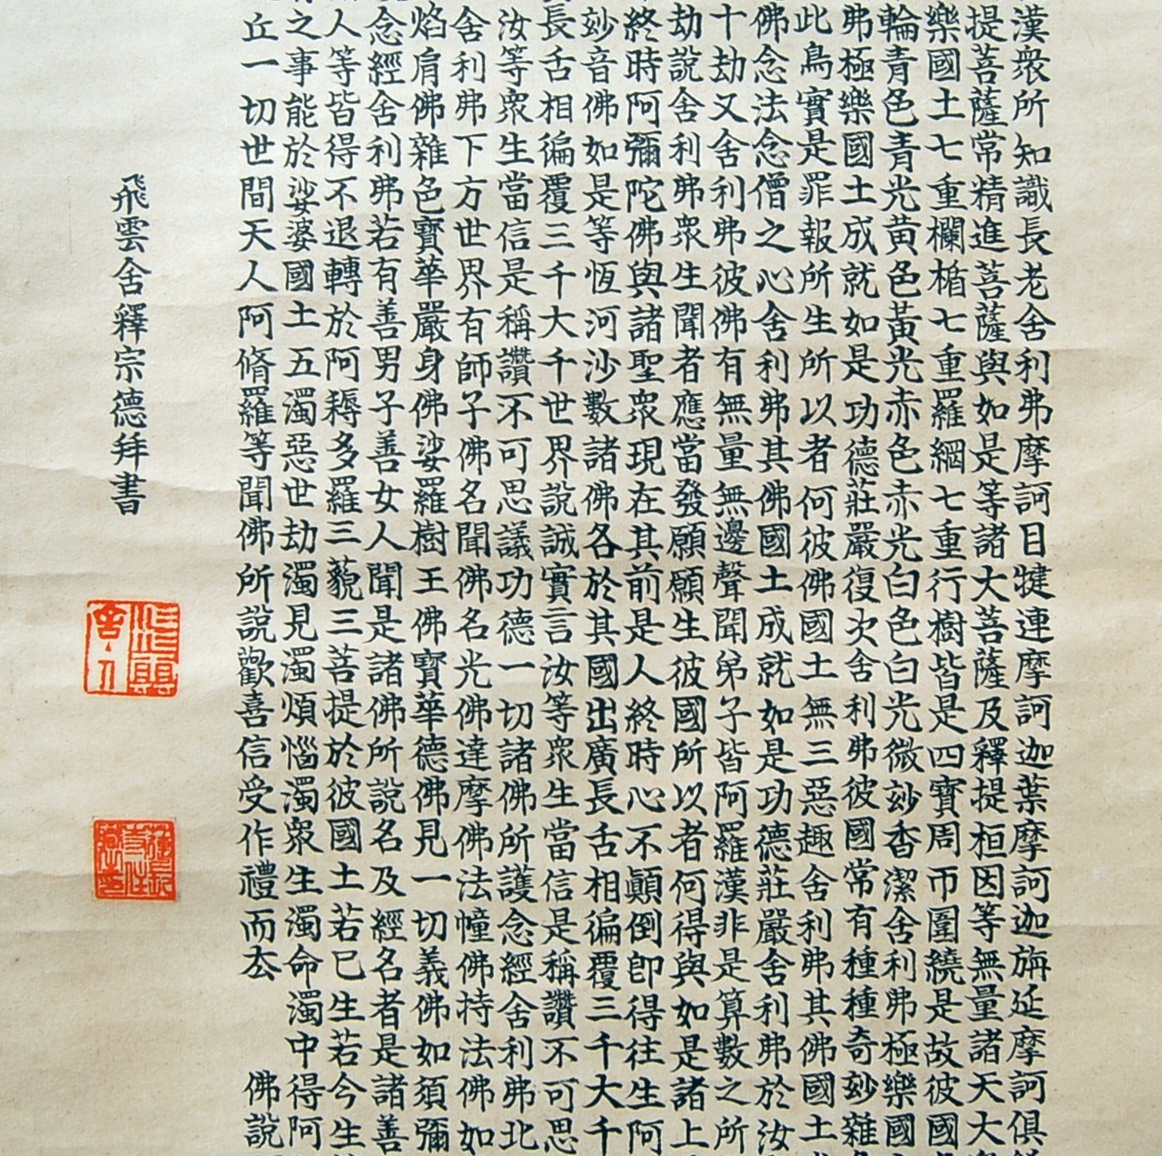 漢衆所知識長老舍利弗摩訶目犍連摩訶迦葉摩訶迦旃延摩訶俱
提菩薩常精進菩薩與如是等諸大菩薩及釋提桓因等無量諸天大
樂國土七重欄楯七重羅網七重行樹皆是四寶周帀圍繞是故彼國
輪青色青光黃色黃光赤色赤光白色白光微玅香潔舍利弗極樂國
弗極樂國土成就如是功德莊嚴復次舍利弗彼國常有種種奇玅雜
此鳥實是罪報所生所以者何彼佛國土無三惡趣舍利弗其佛國土
佛念法念僧之心舍利弗其佛國土成就如是功德莊嚴舍利弗於汝
十劫又舍利弗彼佛有無量無邊聲聞弟子皆阿羅漢非是算數之所
劫說舍利弗衆生聞者應當發願願生彼國所以者何得與如是諸上
終時阿彌陀佛與諸聖衆現在其前是人終時心不顛倒卽得往生阿
玅音佛如是等恆河沙數諸佛各於其國出廣長舌相徧覆三千大千
長舌相徧覆三千大千世界說誠實言汝等衆生當信是稱讚不可思
汝等衆生當信是稱讚不可思議功德一切諸佛所護念經舍利弗北
舍利弗下方世界有師子佛名聞佛名光佛達摩佛法幢佛持法佛如
焰肩佛雜色寶華嚴身佛娑羅樹王佛寶華德佛見一切義佛如須彌
念經舍利弗若有善男子善女人聞是諸佛所說名及經名者是諸善
人等皆得不退轉於阿耨多羅三藐三菩提於彼國土若已生若今生
之事能於娑婆國土五濁惡世劫濁見濁煩惱濁衆生濁命濁中得阿
丘一切世間天人阿脩羅等聞佛所說歡喜信受作禮而去 佛說
飛雲舍釋宗德拜書